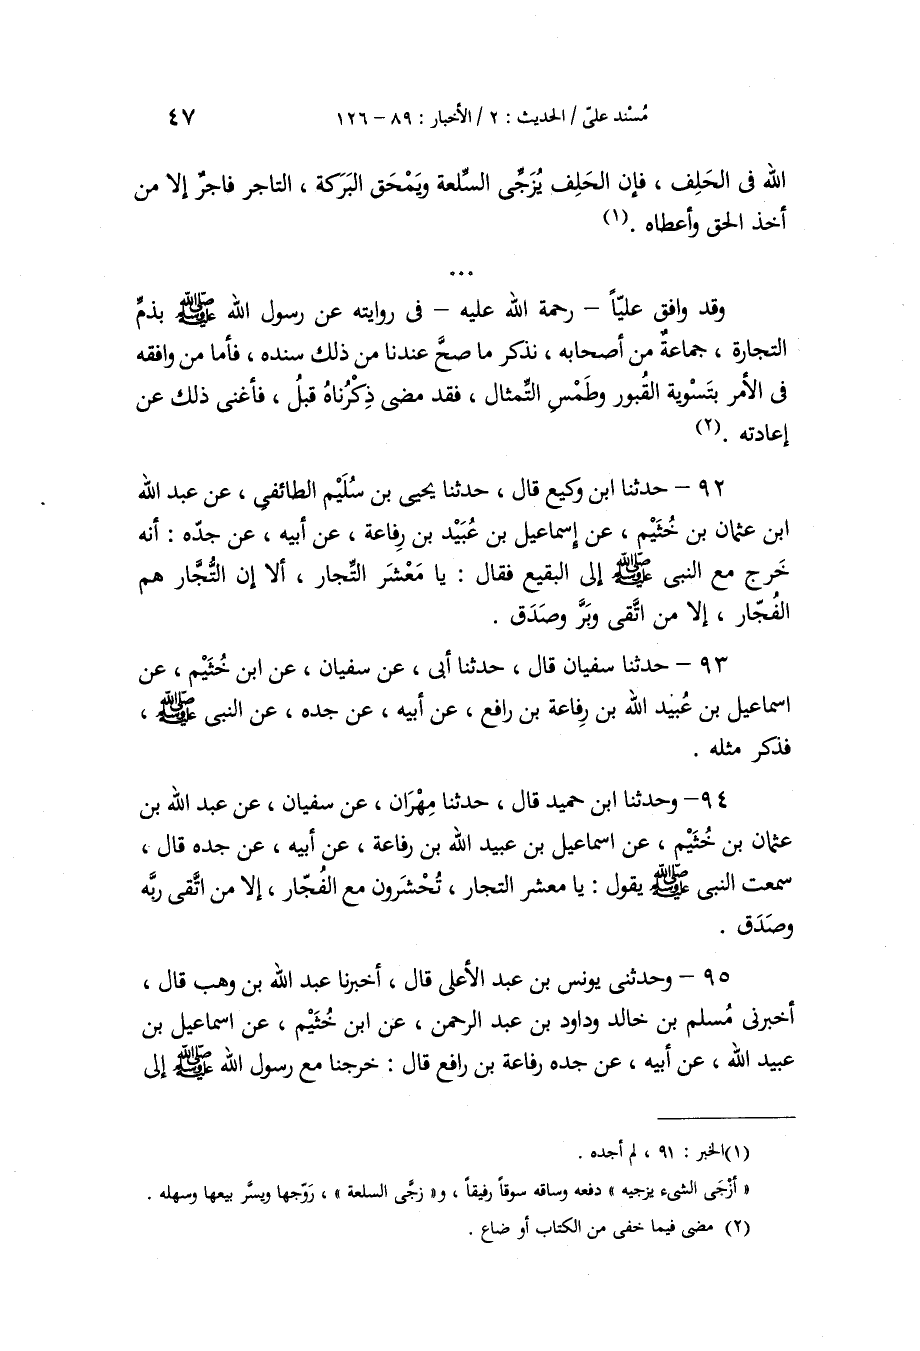 مُسْند عليّ / الحديث : ٢ / الأخبار : ٨٩ – ١٢٦ ٤٧
الله فى الحَلِف ، فإن الحَلِف يُزَجِّى السِّلعة ويَمْحَق البَرَكة ، التاجر فاجرٌ إلا من
أخذ الحق وأعطاه .(١)
...
وقد وافق عليّاً – رحمة الله عليه – فى روايته عن رسول الله ﷺ بذمِّ
التجارة ، جماعةٌ من أصحابه ، نذكر ما صحَّ عندنا من ذلك سنده ، فأما من وافقه
فى الأمر بتَسْوية القُبور وطَمْسِ التِّمثال ، فقد مضى ذِكْرُناهُ قبلُ ، فأغنى ذلك عن
إعادته .(٢)
٩٢ – حدثنا ابن وكيع قال ، حدثنا يحيى بن سُلَيْم الطائفي ، عن عبد الله
ابن عثمان بن خُثَيْم ، عن إسماعيل بن عُبَيْد بن رِفاعة ، عن أبيه ، عن جدّه : أنه
خَرج مع النبى ﷺ إلى البقيع فقال : يا مَعْشَر التِّجار ، ألا إن التُّجَّار هم
الفُجّار ، إلا من اتَّقى وبَرَّ وصَدَق .
٩٣ – حدثنا سفيان قال ، حدثنا أبى ، عن سفيان ، عن ابن خُثَيْم ، عن
اسماعيل بن عُبَيد الله بن رِفاعة بن رافع ، عن أبيه ، عن جده ، عن النبى ﷺ ،
فذكر مثله .
٩٤– وحدثنا ابن حميد قال ، حدثنا مِهْرَان ، عن سفيان ، عن عبد الله بن
عثمان بن خُثَيْم ، عن اسماعيل بن عبيد الله بن رفاعة ، عن أبيه ، عن جده قال ،
سمعت النبى ﷺ يقول : يا معشر التجار ، تُحْشَرون مع الفُجّار ، إلا من اتَّقى ربَّه
وصَدَق .
٩٥ – وحدثنى يونس بن عبد الأعلى قال ، أخبرنا عبد الله بن وهب قال ،
أخبرنى مُسلم بن خالد وداود بن عبد الرحمن ، عن ابن خُثَيْم ، عن اسماعيل بن
عبيد الله ، عن أبيه ، عن جده رفاعة بن رافع قال : خرجنا مع رسول الله ﷺ إلى
(١)الخبر : ٩١ ، لم أجده .
« أزْجَى الشىء يزجيه » دفعه وساقه سوقاً رفيقاً ، و« زجَّى السلعة » ، رَوّجها ويسَّر بيعها وسهله .
(٢) مضى فيما خفى من الكتاب أو ضاع .